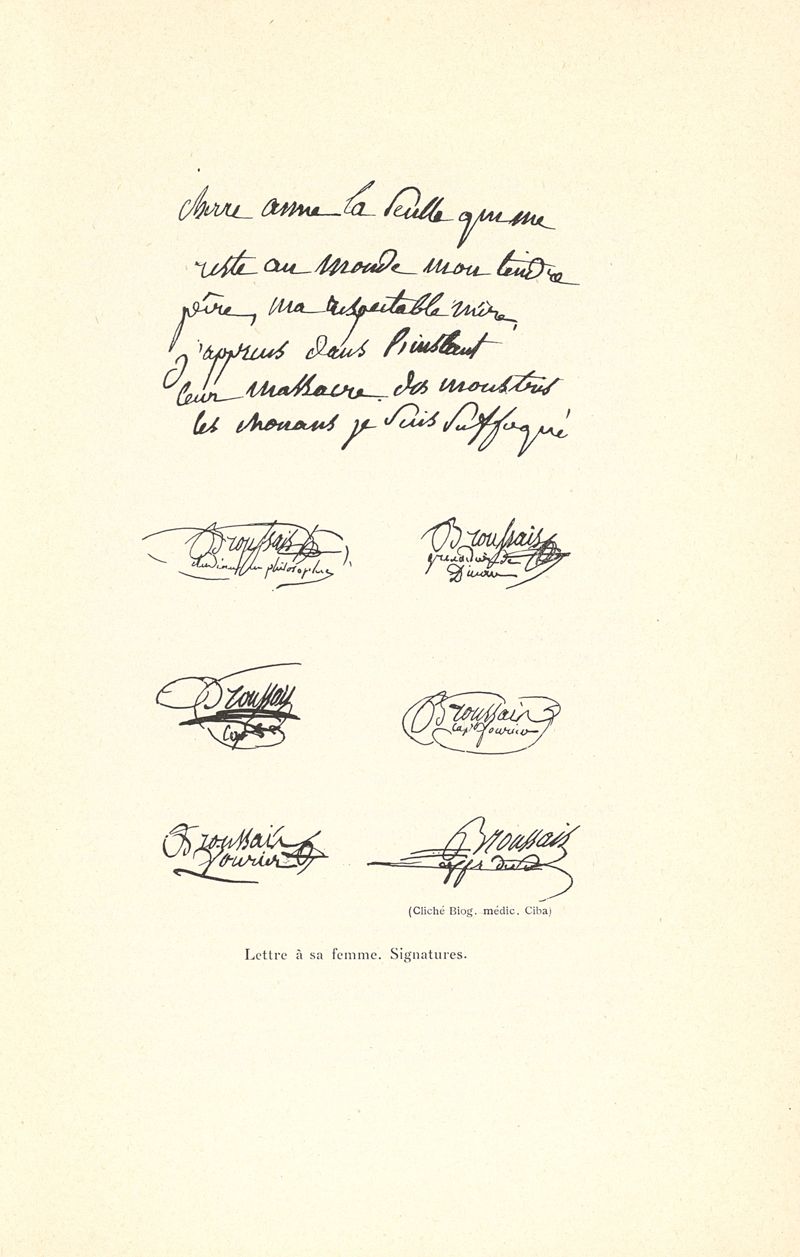 cherre amie la seulle qui me
reste au monde mon tendre
père, ma respectable mère,
j'apprens dans l'instant
leur massacre des monstres
les chouans je suis suffoqué
Broussais
étudiant en philosophie
Broussais
grenadier de
Dinan
Broussais
cap
Broussais
cap fourier
Broussais
fourier
Broussais
(Cliché Biog. médic. Ciba)
Lettre à sa femme. Signatures.